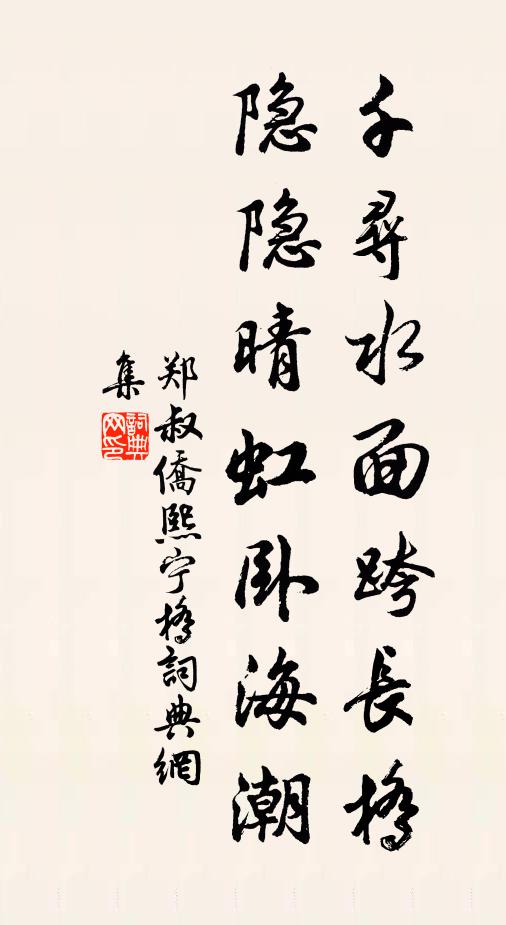 千尋水面跨長橋
隐隐晴虹卧海潮
郑叔僑熙宁橋詞典網
集
詞典網印